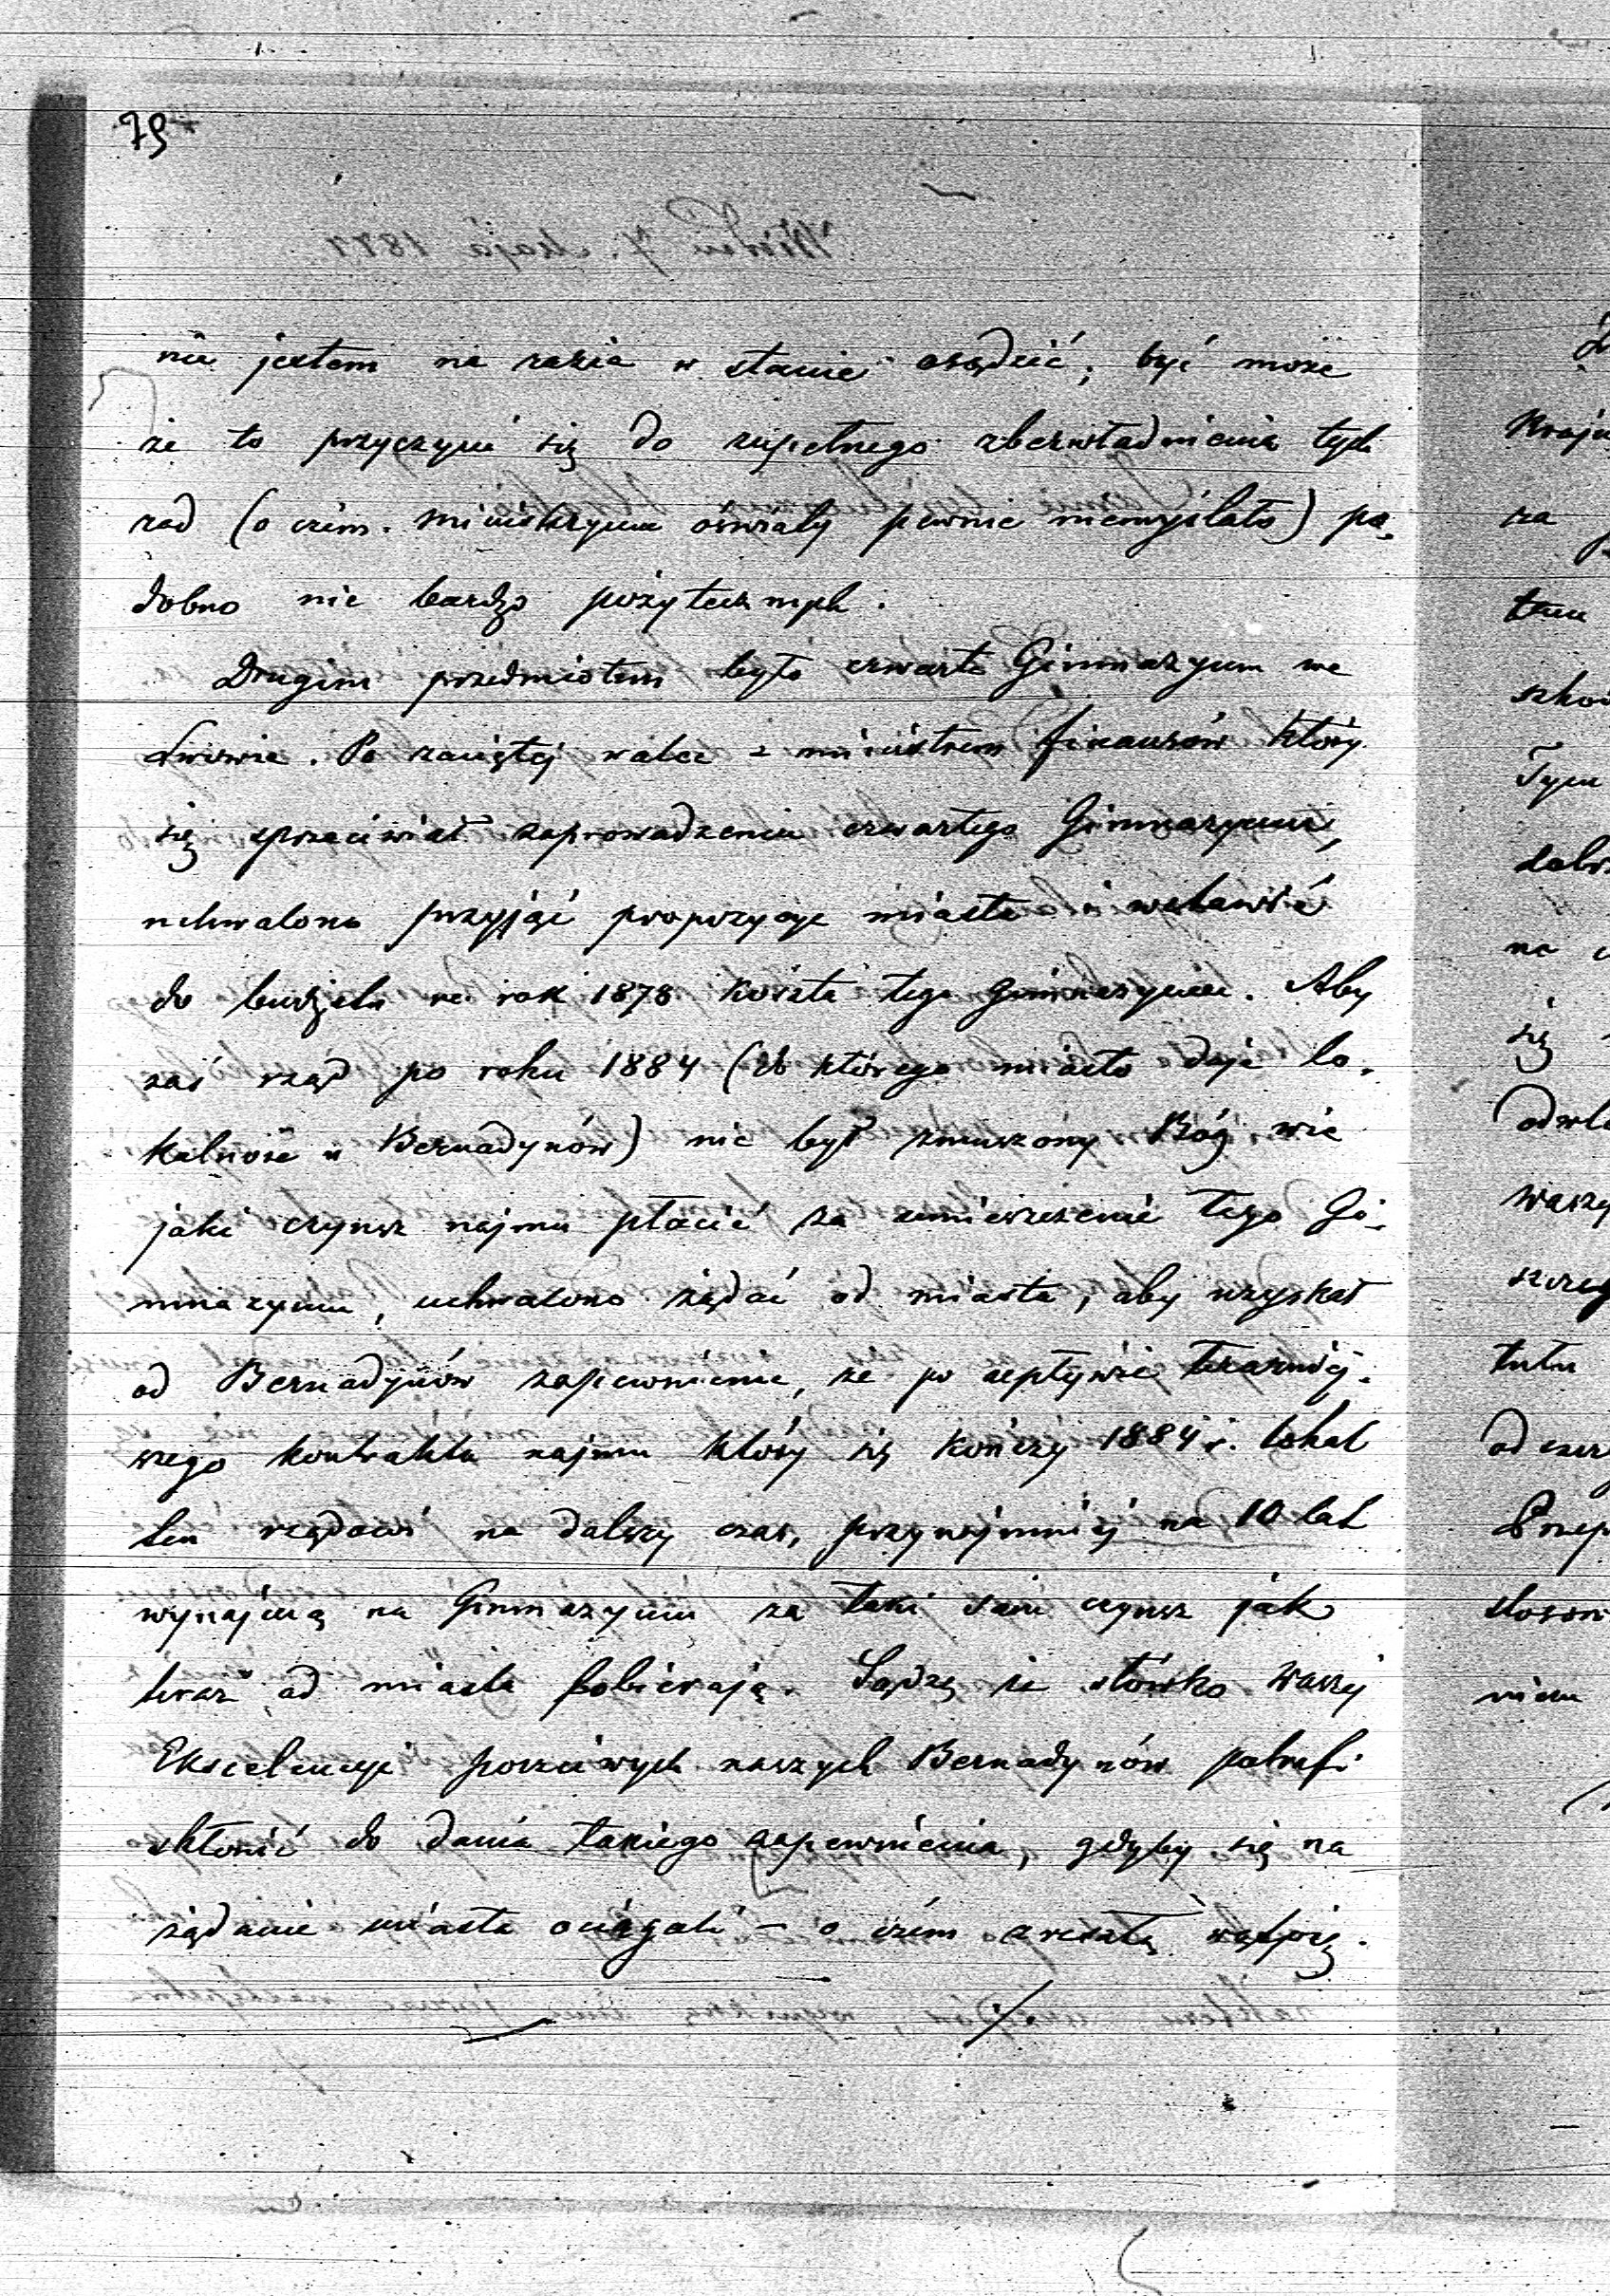 79
nie jestem na razie w stanie osądzić; być może
że to przyczyni się do zupełnego ubezwładnienia tych
rad (o czém ministeryum oświaty pewnie niemyślało) po-
dobno nie bardzo pożytecznych.
Drugim przedmiotem było czwarte Gimnazyum we
Lwowie. Po zaciętej walce z ministrem finansów który
się sprzeciwiał zaprowadzeniu czwartego Gimnazyum,
uchwalono przyjąć propozycye miasta i wstawić
do budżetu na rok 1878 koszta tego gimnazyum. Aby
zaś rząd po roku 1884 (do którego miasto daje lo-
kalność u Bernadynów) nie był zmuszony Bóg wie
jaki czynsz najmu płacić za umieszczenie tego Gi-
mnazyum, uchwalono żądać od miasta, aby uzyskał
od Bernadynów zapewnienie, że po upływie teraźniej-
szego kontraktu najmu który się kończy 1884 r. lokal
ten rządowi na dalszy czas, przynajmniéj na 10 lat
wynajmą na Gimnazyum za taki sam czynsz jak
teraz od miasta pobierają. Sądzę że słówko Waszej
Ekscelencyi poczciwych naszych Bernadynów potrafi
skłonić do dania takiego zapewnienia, gdyby się na
żądanie miasta ociągali – o czém zresztą wątpię.
Kraju
za
się
tutu